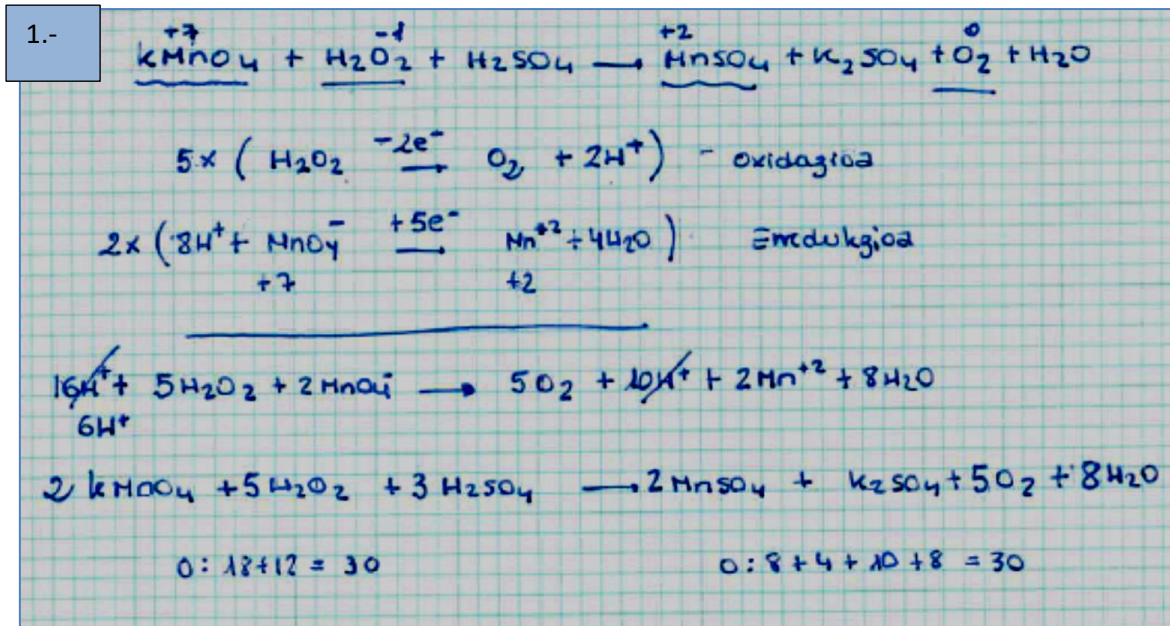 1.-
+7 -1 +2 0
KMnO4 + H2O2 + H2SO4 → MnSO4 + K2SO4 + O2 + H2O
5x ( H2O2 -2e⁻ → O2 + 2H⁺ ) - oxidazioa
2x ( 8H⁺ + MnO4⁻ +5e⁻ → Mn⁺² + 4H2O ) Erredukzioa
+7 +2
16H⁺ + 5H2O2 + 2MnO4⁻ → 5O2 + 10H⁺ + 2Mn⁺² + 8H2O
6H⁺
2 KMnO4 + 5H2O2 + 3 H2SO4 → 2 MnSO4 + K2SO4 + 5O2 + 8H2O
O: 18+12 = 30 O: 8+4+10+8 = 30